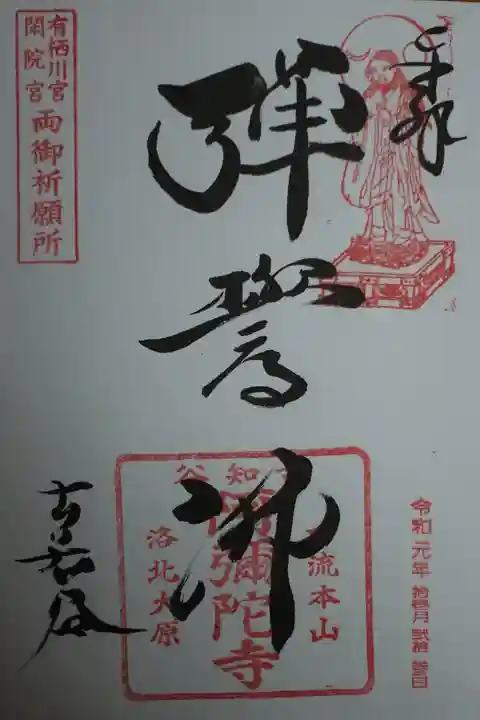 奉拝
彈誓佛
古知谷
有栖川宮
閑院宮
両御祈願所
谷知古
流本山
阿彌陀寺
洛北大原
令和元年 拾壹月 貳拾 叁日